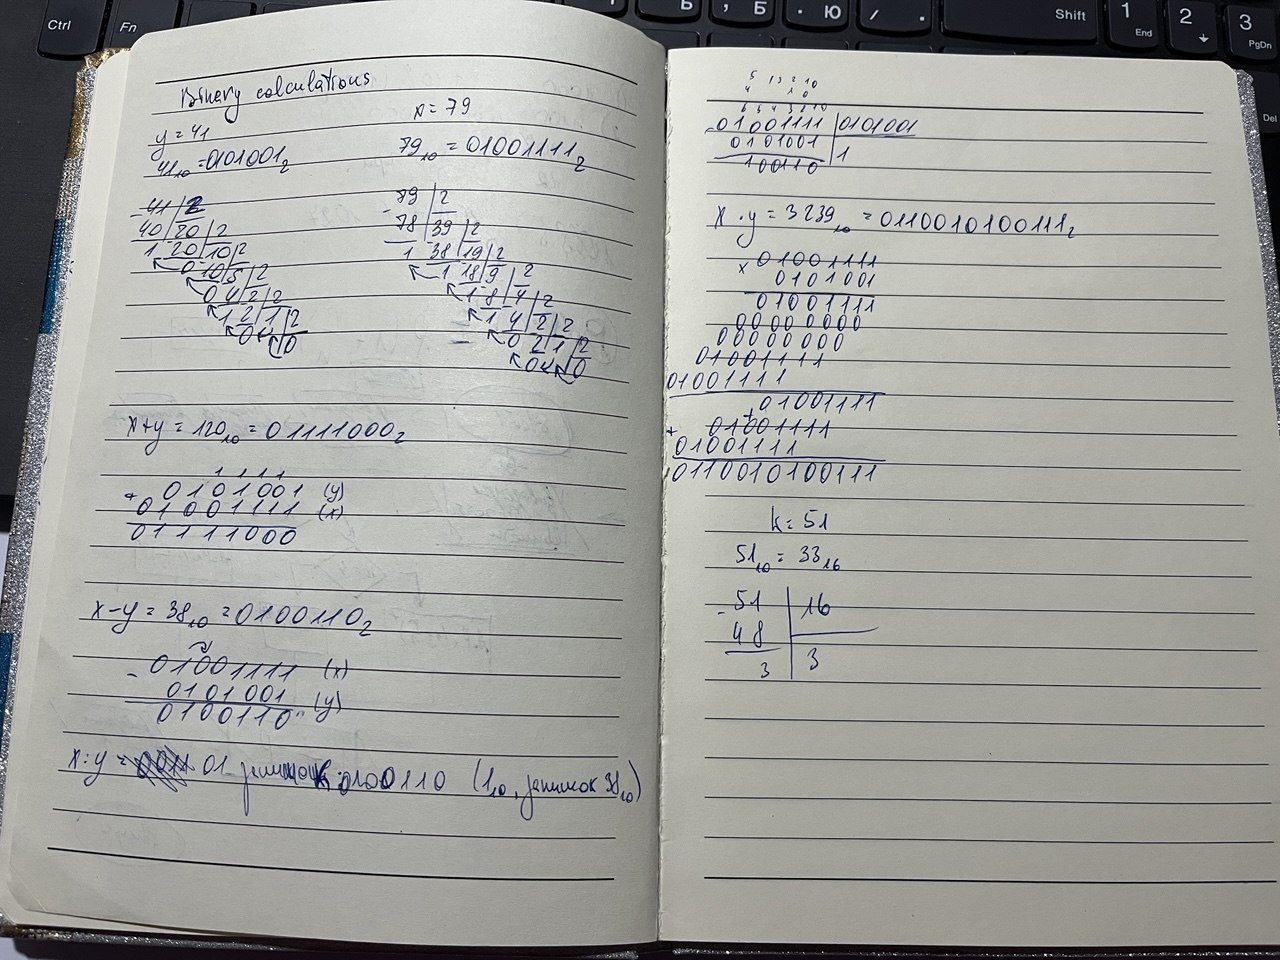 Ctrl
Fn
Б
, Б
. Ю
/ .
Shift
1
End
2
3
PgDn
Del
Binary calculations
y = 41
x = 79
41₁₀ = 0101001₂
79₁₀ = 01001111₂
-41 | 2
40 | 20 | 2
1 20 | 10 | 2
0 10 | 5 | 2
0 4 | 2 | 2
1 2 | 1 | 2
0 0
-79 | 2
78 | 39 | 2
1 38 | 19 | 2
1 18 | 9 | 2
1 8 | 4 | 2
1 4 | 2 | 2
0 2 | 1 | 2
0 0
x+y = 120₁₀ = 01111000₂
1 1 1 1
+ 0101001 (y)
01001111 (x)
01111000
x-y = 38₁₀ = 0100110₂
- 01001111 (x)
0101001 (y)
0100110
x:y = 01 залишок 0100110 (1₁₀, залишок 38₁₀)
5 1 3 2 1 0
4 1 0
6 5 4 3 2 1 0
- 01001111 | 0101001
0101001 | 1
100110
x · y = 3239₁₀ = 0110010100111₂
x 01001111
0101001
01001111
00000000
00000000
01001111
01001111
+ 01001111
+ 01001111
01001111
0110010100111
k = 51
51₁₀ = 33₁₆
- 51 | 16
48
3 | 3